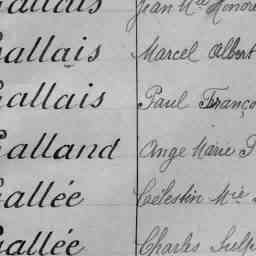 allais Jean Mie Honoré
allais Marcel Albert
allais Paul Franço
alland Ange Marie P
allée Célestin Mie
allée Charles Sulp